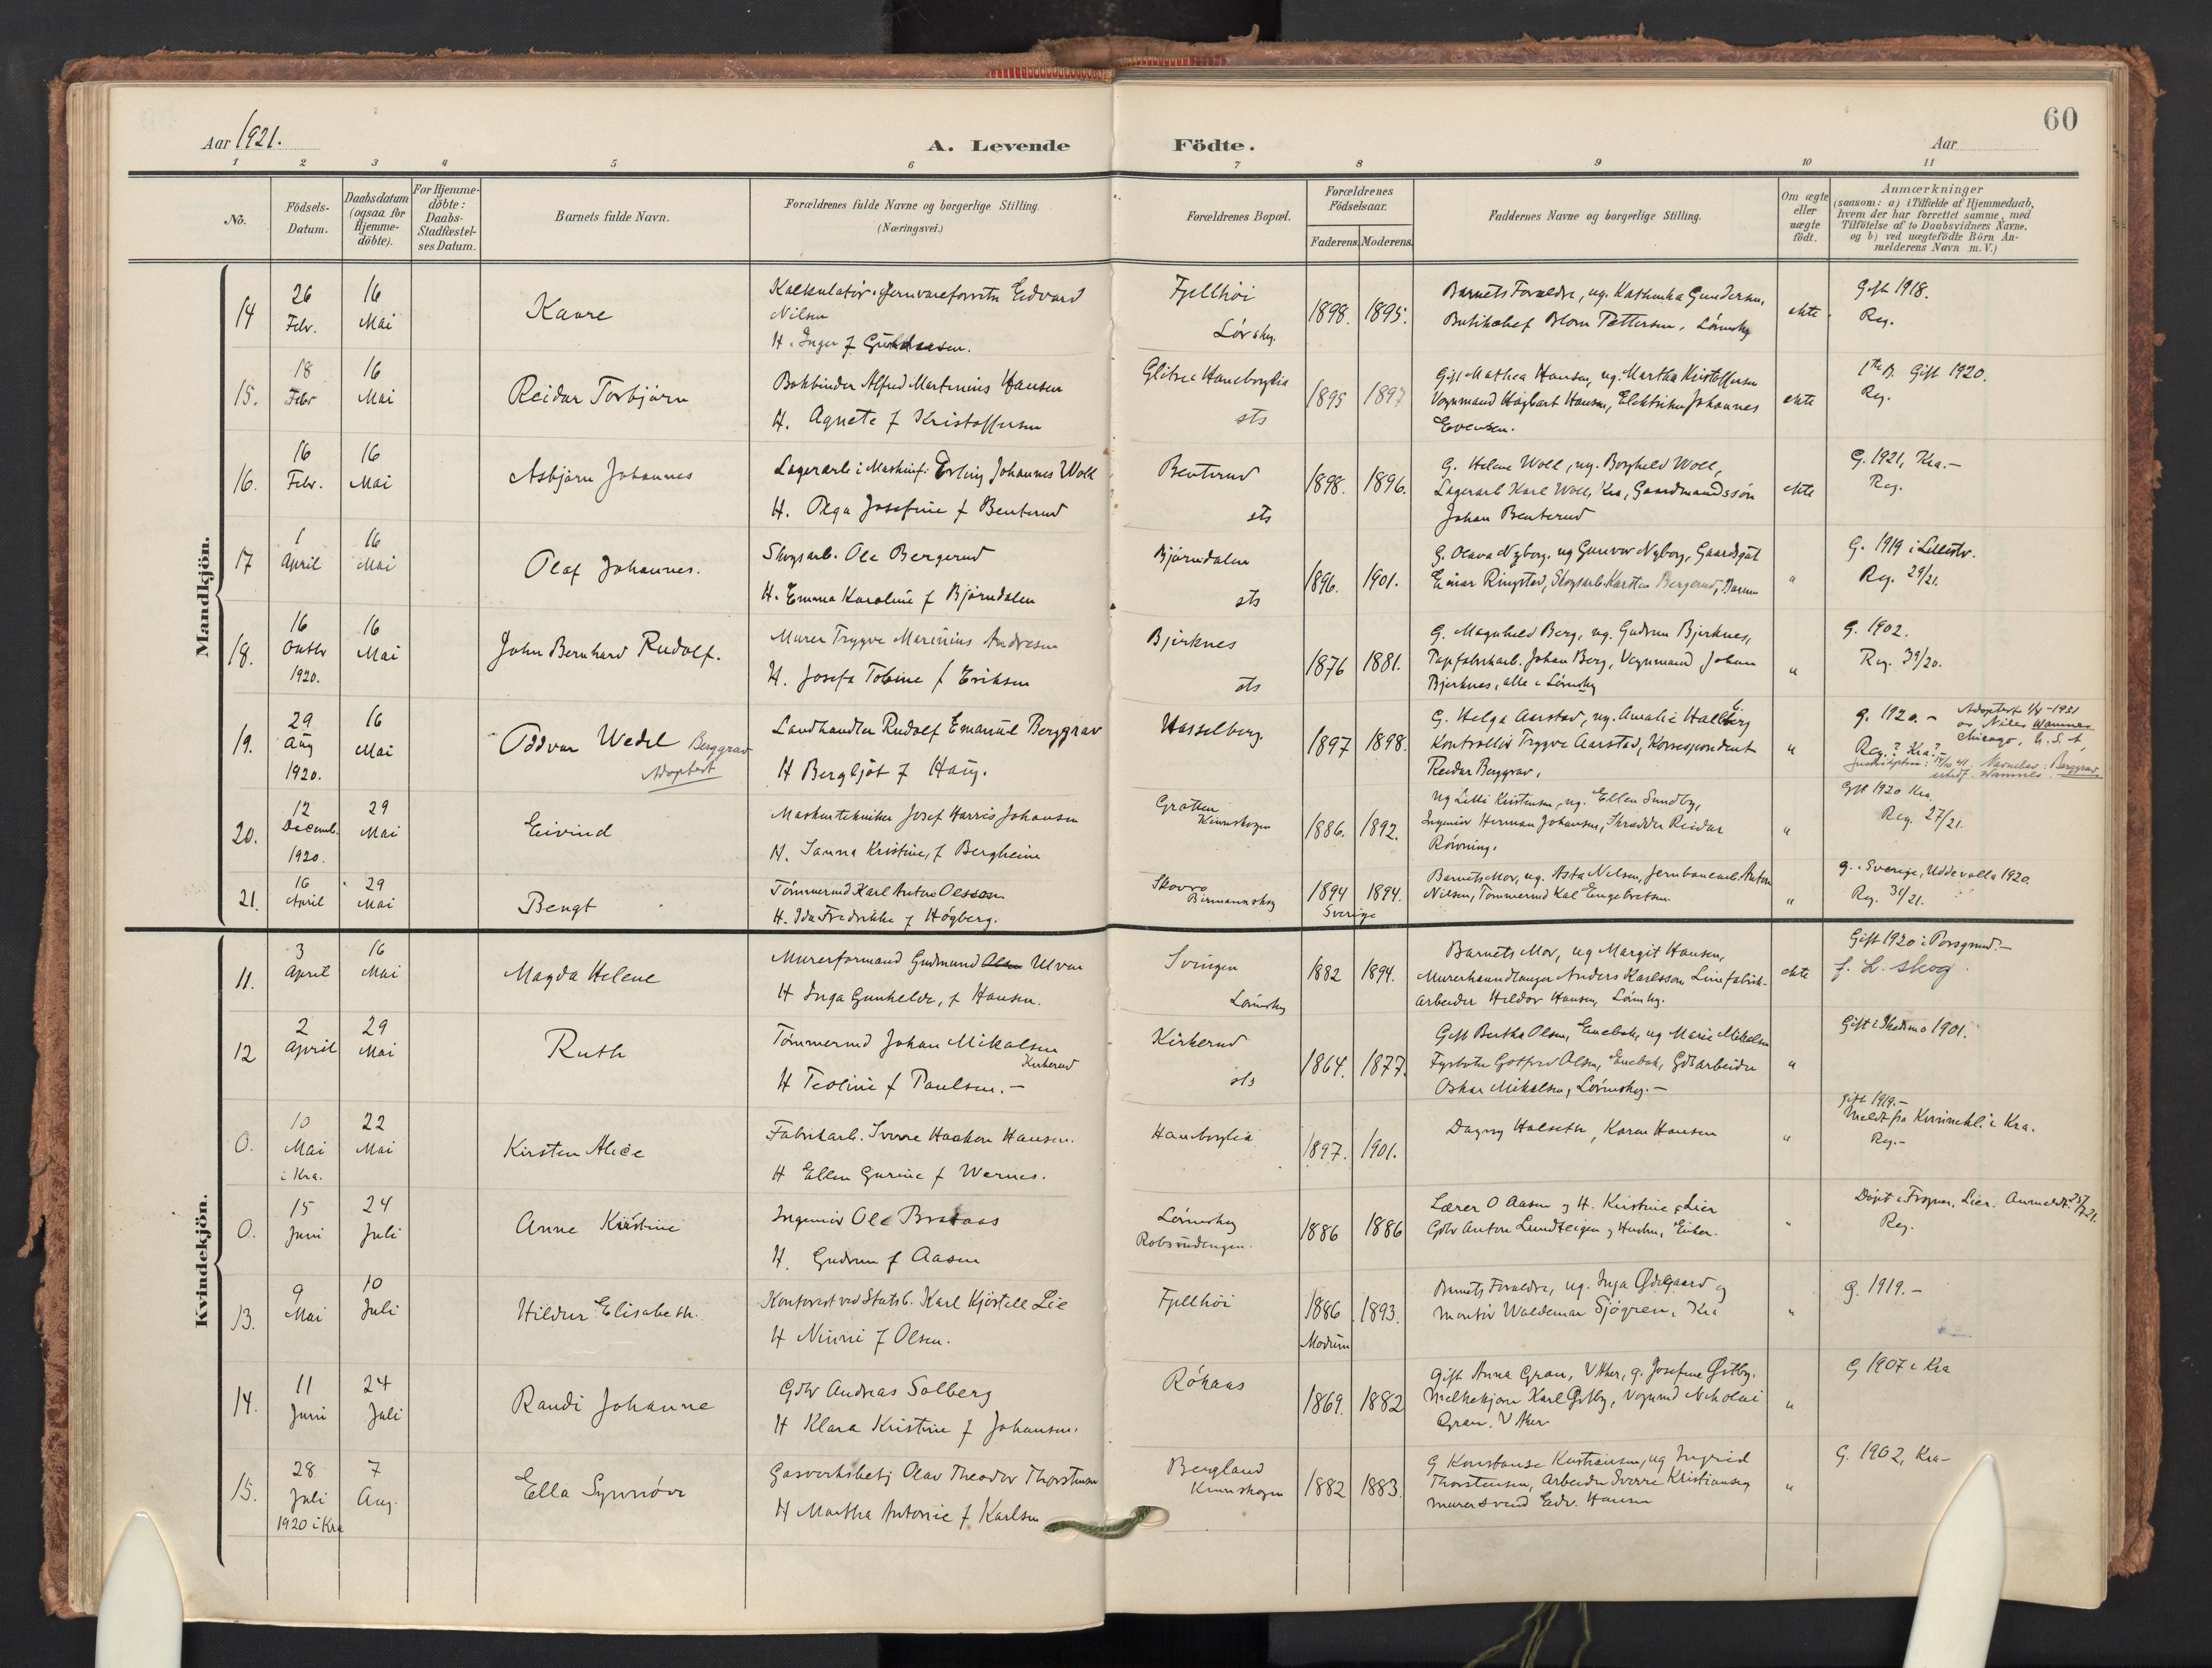 60
Aar 1921.
A. Levende Födte.
Aar
1 2 3 4 5 6 7 8 9 10 11
Nö.
Födsels-Datum.
Daabsdatum (ogsaa for Hjemme-döbte).
For Hjemme-döbte: Daabs-Stadfæstel-ses Datum.
Barnets fulde Navn.
Forældrenes fulde Navne og borgerlige Stilling. (Næringsvei.)
Forældrenes Bopæl.
Forældrenes Födselsaar.
Faderens. Moderens.
Faddernes Navne og borgerlige Stilling.
Om ægte eller uægte födt.
Anmærkninger
(saasom: a) i Tilfælde af Hjemmedaab,
hvem der har forrettet samme, med
Tilföielse af to Daabsvidners Navne,
og b) ved uægtefödte Börn An-
melderens Navn m. V.)
Mandkjön.
14 26 Febr. 16 Mai Kaare
Edvard
Nilsen
H. Inger f
Fjellhöi
1898. 1895.
Barnets Forældre, ug. Kathinka Gundersen,
Pettersen, Lörenskg
ekte
Gift 1918.
Reg.
15. 18 Febr 16 Mai Reidar Torbjörn
Bokbinder Alfred Martinius Hansen
H. Agnete f Kristoffersen
Glitre Haneborglia
sts
1895 1897
Gift Mathea Hansen, ug. Martha Kristoffersen
Vognmand Hagbart Hansen, Elektriker Johannes
Evensen.
ekte
Gift 1920.
Reg.
16. 16 Febr. 16 Mai Asbjörn Johannes
Lagerarb i Maskinf. Erling Johannes Woll
H. Olga Josefine f Benterud
Benterud
sts
1898. 1896.
G. Helene Woll, ug. Borghild Woll,
Lagerarb Karl Woll, Kra, Gaardmandssön
Johan Benterud
ekte
G. 1921, Kra.-
Reg.
17 1 April 16 Mai Olaf Johannes.
Skogsarb. Ole Bergerud
H. Emma Karoline f Björndalen
Björndalen
sts
1896. 1901.
G. Olava Nyborg, ug Gunvor Nyborg, Gaardsgut
Einar Ringstad, Skogsarb Karsten Bergerud, Bærum
"
G. 1919 i Lillestr.
Reg. 29/21.
18. 16 Oktbr 1920. 16 Mai John Bernhard Rudolf.
Murer Trygve Marinius Andresen
H. Josefa Tobine f Eriksen
Bjerknes
sts
1876 1881.
G. Magnhild Berg, ug. Gudrun Bjerknes,
Papfabrikarb. Johan Berg, Vognmand Johan
Bjerknes, alle i Lörenskg
"
G. 1902.
Reg. 39/20.
19. 29 Aug 1920. 16 Mai Oddvar Wedel Berggrav
Adoptert
Landhandler Rudolf Emanuel Berggrav
H Bergljot f Haug.
Hasselberg.
1897 1898.
G. Helga Aarstad, ug. Amalie Hallberg
Kontrollör Trygve Aarstad, Korrespondent
Reidar Berggrav.
"
G. 1920. - Adoptert 1931
av Niles Wamnes
Chicago, U. S. A,
Reg.? Kra?
Berggrav
Wamnes
20. 12 Decemb. 1920. 29 Mai Eivind
Maskintekniker Josef Harris Johansen
H. Sanna Kristine, f Bergheim
Gratten
1886. 1892.
Ug Lilli Kristensen, ug. Ellen Sundby,
Ingeniör Herman Johansen, Skrædder Reidar
Rövning.
"
Gift 1920 Kra.
Reg. 27/21.
21. 16 April 29 Mai Bengt
Tömmermd Karl Anton Olsson
H. Ida Fredrikke f Högberg.
Skovro
1894 1894.
Sverige
Barnets Mor, ug. Asta Nilsen, Jernbanearb. Anton
Nilsen, Tömmermd Kal Engebretsen
"
G. i Sverige, Uddevalla 1920.
Reg. 31/21.
Kvindekjön.
11. 3 April 16 Mai Magda Helene
Murerformand Gudmund Ulven
H Inga Gunhilde, f Hansen.
Svingen
Lörenskg
1882 1894.
Barnets Mor, ug Margit Hansen,
Murerhaandlanger Anders Karlsson, Limfabrik-
arbeider Hildor Hansen, Lörenskg.
ekte
Gift 1920 i Porsgrund.-
f. L. skog
12 2 April 29 Mai Ruth
Tömmermd Johan Mikalsen
Kirkerud
H Teoline f Paulsen. -
Kirkerud
sts
1864. 1877.
Gift Bertha Olsen, Enebak, ug Marie Mikalsen
Fyrböter Gotfred Olsen, Enebak, Gdsarbeider
Oskar Mikalsen, Lörenskg. -
"
Gift i Skedsmo 1901.
0. 10 Mai i Kra. 22 Mai Kirsten Alice
Fabrikarb. Sverre Haakon Hansen.
H Ellen Gurine f Wernes.
Haneborglia
1897. 1901.
Dagny Halseth, Karen Hansen
"
Gift 1919.-
Meldt fra Kvinnekl. i Kra.
Reg.-
0. 15 Juni 24 Juli Anne Kristine
Ingeniör Ole Brataas
H. Gudrun f Aasen
Lörenskg
Robsrudengen.
1886 1886
Lærer O Aasen og H. Kristine f Lier
Gdbr Anton Lundteigen og Hustru, Eiker.
"
Döpt i Frogner, Lier. Anmeldt 25/7 21.
Reg.
13. 9 Mai 10 Juli Hildur Elisabeth.
Kontorist ved Statsb. Karl Kjöstell Lie
H Ninni f Olsen.
Fjellhöi
1886 1893.
Modum
Barnets Forældre, ug. Inga Ödegaard og
Montör Waldemar Sjögren, Kra
"
G. 1919. -
14. 11 Juni 24 Juli Randi Johanne
Gdbr Andreas Solberg
H Klara Kristine f Johansen.
Röhaas
1869. 1882
Gift Anna Gran, V Aker, g. Josefine Östby.
Melkekjörer Karl Östby, Vognmd Nikolai
Gran, V Aker
"
G 1907 i Kra
15. 28 Juli 1920 i Kra 7 Aug. Ella Synnöve
Gasverksbetj Olav Theodor Thorstensen
H Martha Antonie f Karlsen
Bergland
1882 1883.
G Konstanse Kristiansen, ug Ingrid
Thorstensen, Arbeider Sverre Kristiansen
Murersvend Edv. Hansen
"
G. 1902, Kra-